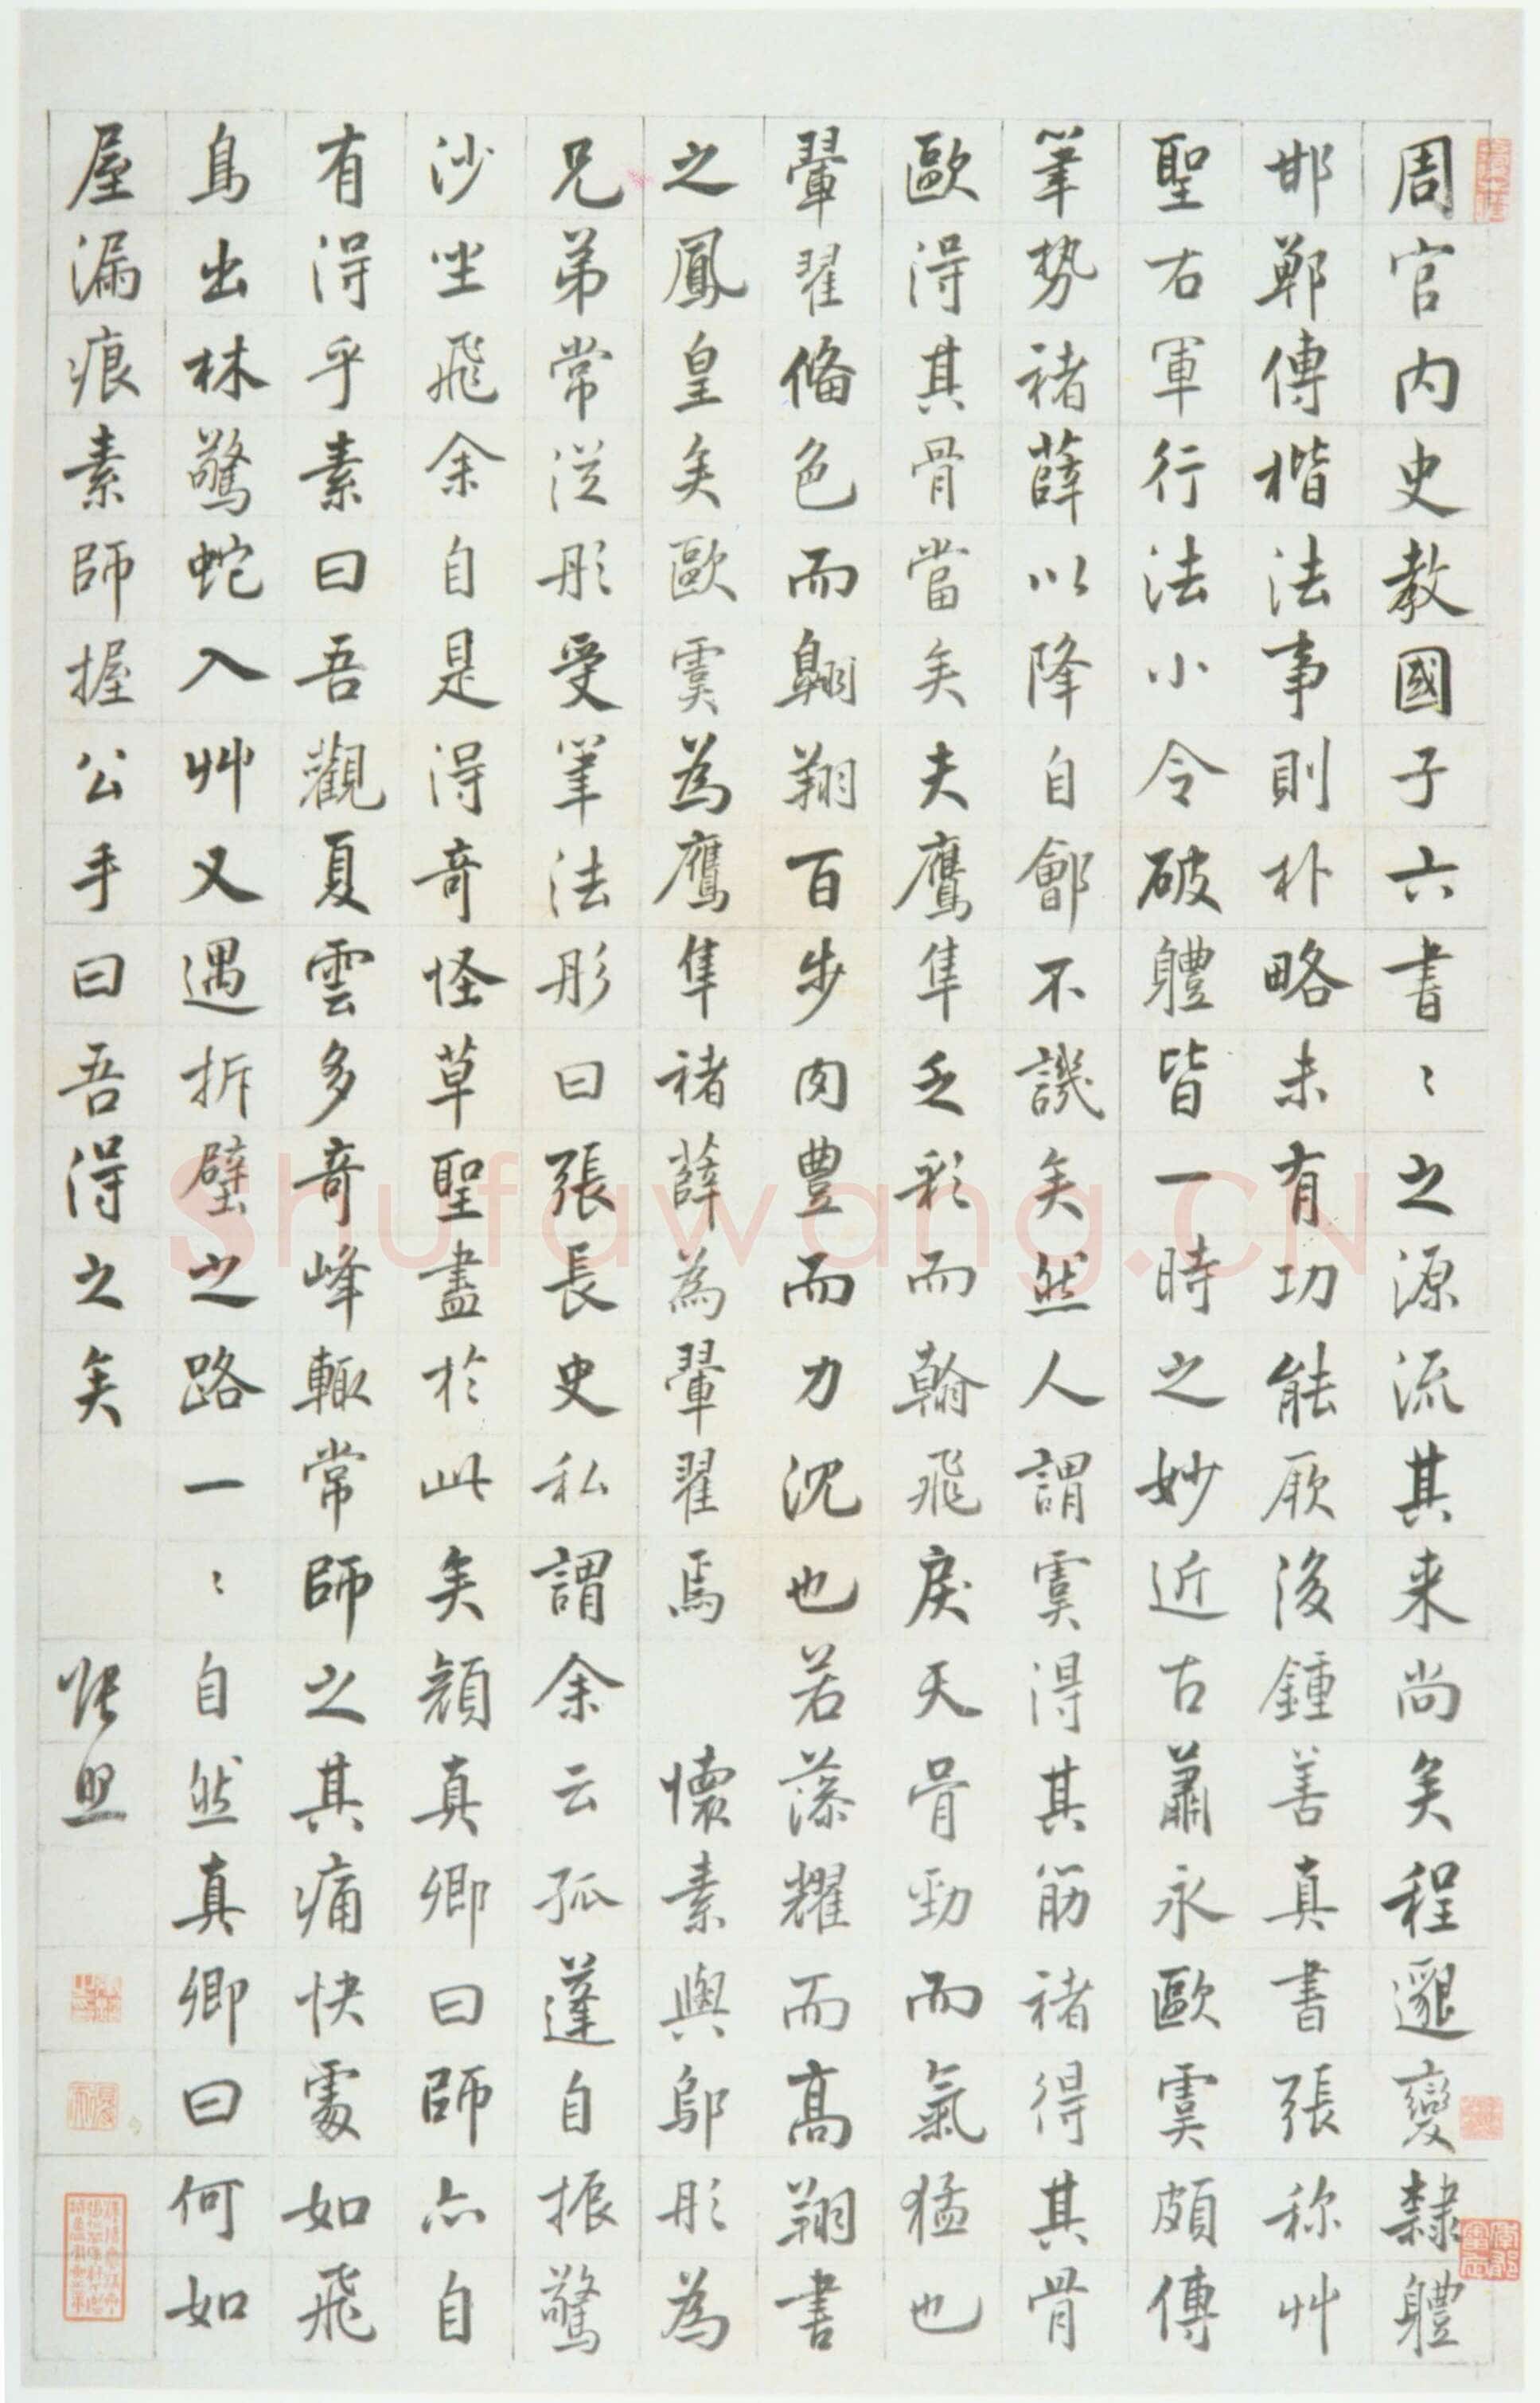 周官内史教國子六書〻之源流其来尚矣程邈變隸體
邯鄲傳楷法事則朴略未有功能厥後鍾善真書張称艸
聖右軍行法小令破體皆一時之妙近古蕭永歐虞頗傳
筆勢褚薛以降自鄶不譏矣然人謂虞得其筋褚得其骨
歐得其骨當矣夫鷹隼乏彩而翰飛戾天骨勁而氣猛也
翬翟俻色而翺翔百步肉豊而力沉也若藻耀而高翔書
之鳳皇矣歐虞為鷹隼褚薛為翬翟焉 懷素與鄔彤為
兄弟常従彤受筆法彤曰張長史私謂余云孤蓬自振驚
沙坐飛余自是得奇怪草聖盡於此矣顔真卿曰師亦自
有得乎素曰吾觀夏雲多奇峰輒常師之其痛快處如飛
鳥出林驚蛇入艸又遇拆壁之路一〻自然真卿曰何如
屋漏痕素師握公手曰吾得之矣 張照
Shufawang.CN